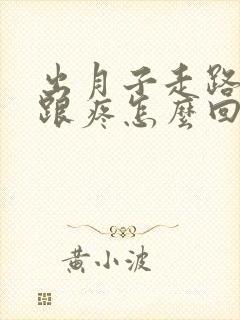 出月子走路
跟疼怎麼回
黃小波